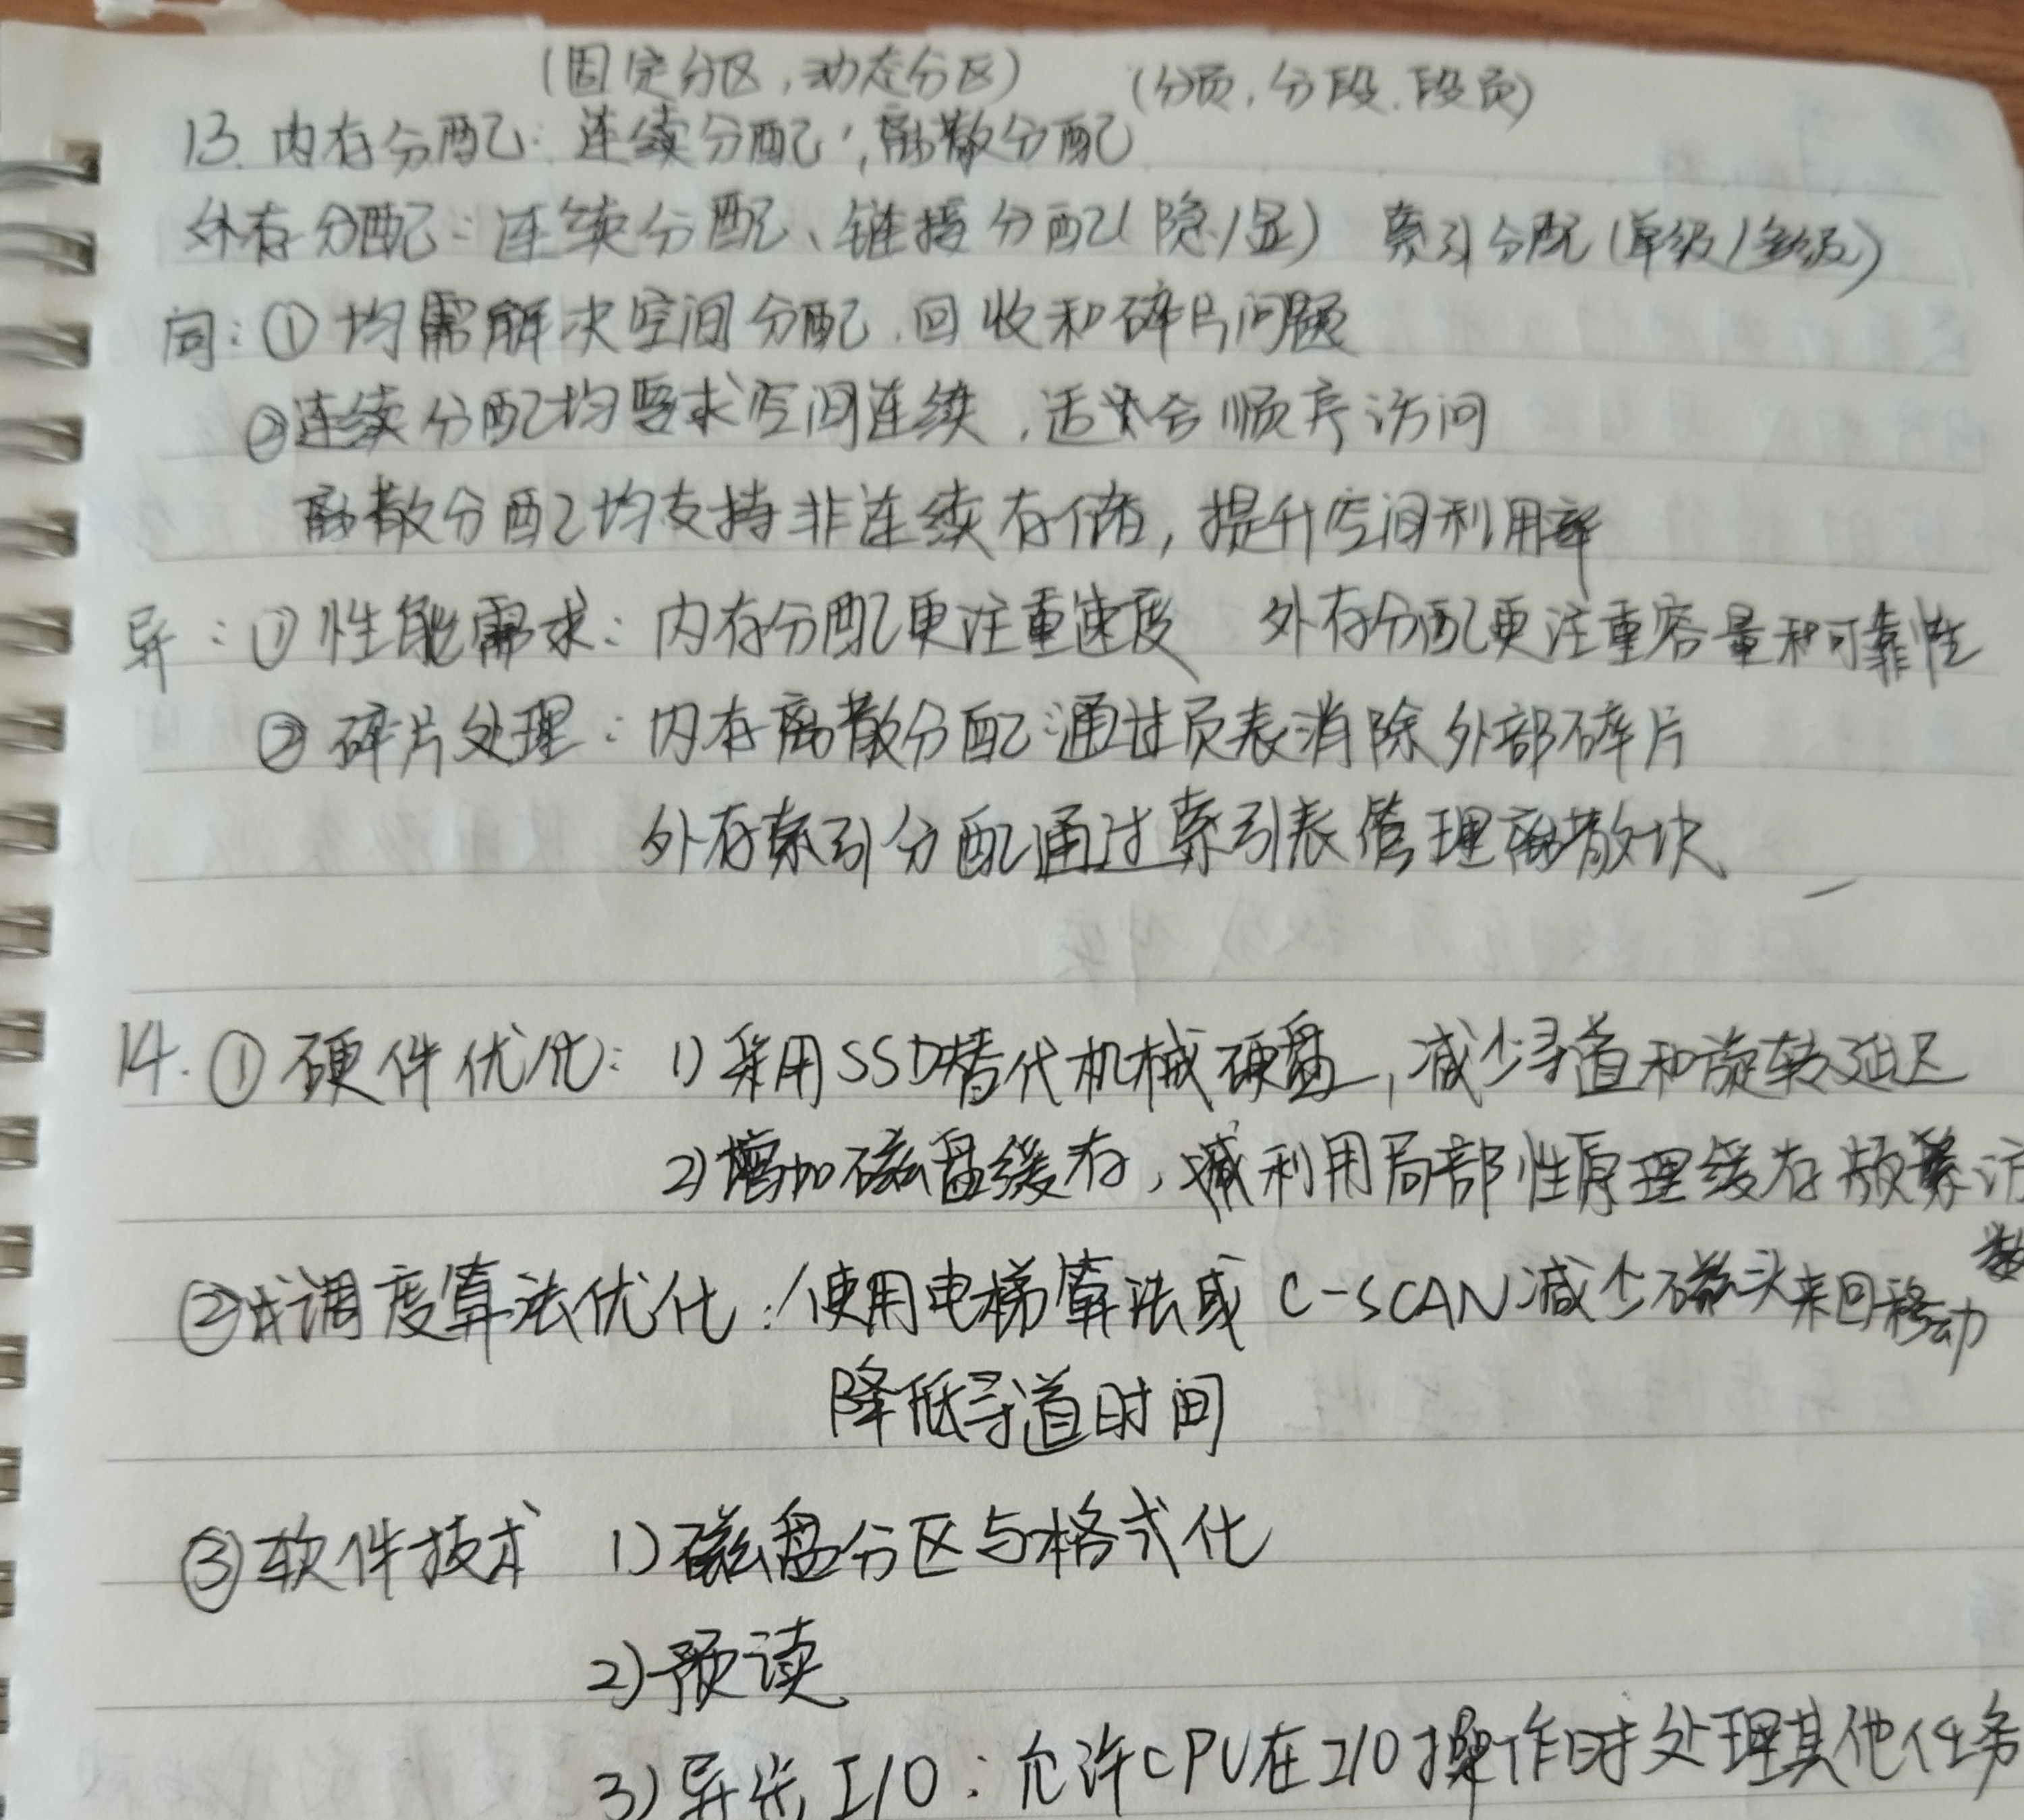 (固定分区,动态分区) (分页,分段.段页)
13. 内存分配: 连续分配,离散分配
外存分配: 连续分配、链接分配(隐/显) 索引分配(单级/多级)
同: ① 均需解决空间分配.回收和碎片问题
②连续分配均要求空间连续,适合顺序访问
离散分配均支持非连续存储,提升空间利用率
异: ① 性能需求: 内存分配更注重速度 外存分配更注重容量和可靠性
② 碎片处理: 内存离散分配通过页表消除外部碎片
外存索引分配通过索引表管理离散块
14. ① 硬件优化: 1) 采用SSD替代机械硬盘,减少寻道和旋转延迟
2) 增加磁盘缓存,利用局部性原理缓存频繁访
数
② 调度算法优化: 使用电梯算法或 C-SCAN减少磁头来回移动
降低寻道时间
③ 软件技术 1) 磁盘分区与格式化
2) 预读
3) 异步I/O: 允许CPU在I/O操作时处理其他任务